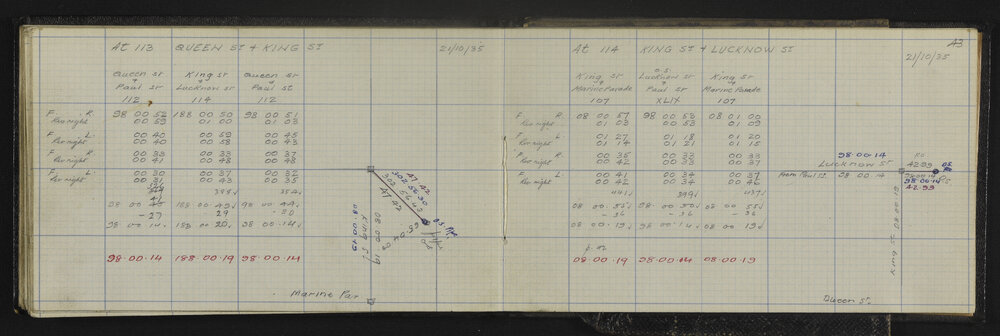 At 113 QUEEN ST + KING ST 21/10/35
Queen St + Paul St 112
King St + Lucknow St 114
Queen St + Paul St 112
F R. 98 00 52 188 00 50 98 00 51
Rev night 00 59 01 03 01 03
F L. 00 40 00 59 00 45
Rev night 00 40 00 58 00 43
F R. 00 33 00 33 00 37
Rev night 00 41 00 48 00 48
F L. 00 30 00 37 00 32
Rev night 00 31 00 43 00 35
98 00 14 188 00 20 98 00 14
98·00·14 188·00·19 98·00·14
47 42
08 00 19
King St
Marine Par
At 114 KING ST + LUCKNOW ST 21/10/35
A3
King St + Marine Parade 107
O.S. Lucknow St + Paul St XLIX
King St + Marine Parade 107
F R. 08 00 57 98 00 53 08 01 00
Rev night 01 03 00 58 01 09
F L. 01 27 01 18 01 20
Rev night 01 14 01 21 01 15
F R. 00 35 00 32 00 33
Rev night 00 42 00 33 00 37
F L. 00 41 00 34 00 37
Rev night 00 42 00 34 00 46
- 36 - 36 - 36
08 00 19 98 00 14 08 00 19
08·00·19 98·00·14 08·00·19
98·00·14
Lucknow St
42.99
from Paul St 98 00 14
98·00·14
42·99
King St
Queen St